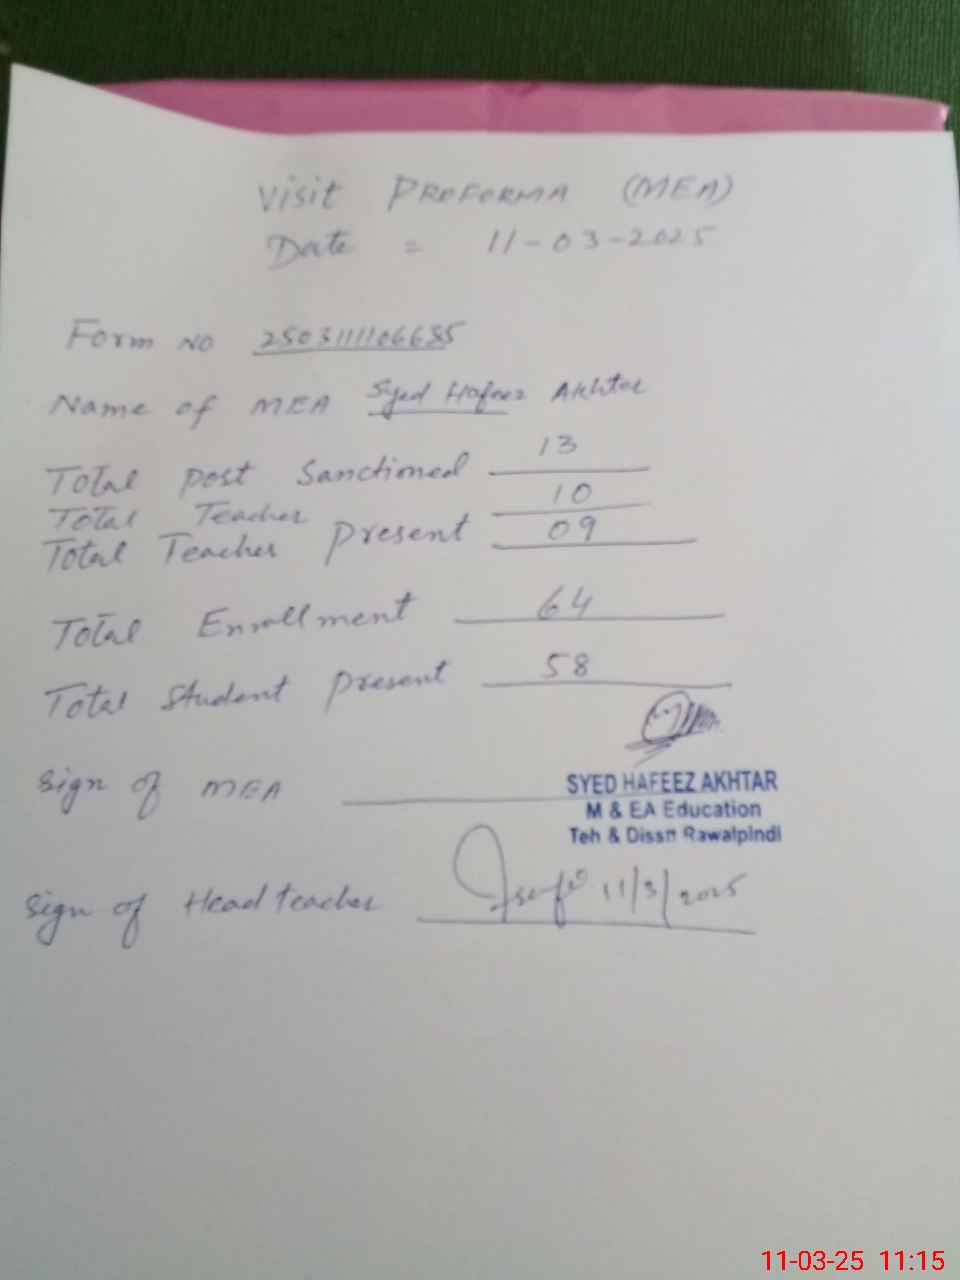 Visit PROFORMA (MEA)
Date = 11-03-2025
Form NO 2503111106685
Name of MEA Syed Hafeez Akhtar
Total Post Sanctioned 13
Total Teacher 10
Total Teacher Present 09
Total Enrollment 64
Total Student Present 58
Sign of MEA
SYED HAFEEZ AKHTAR
M & EA Education
Teh & Disstt Rawalpindi
Sign of Head teacher 11/3/2025
11-03-25 11:15